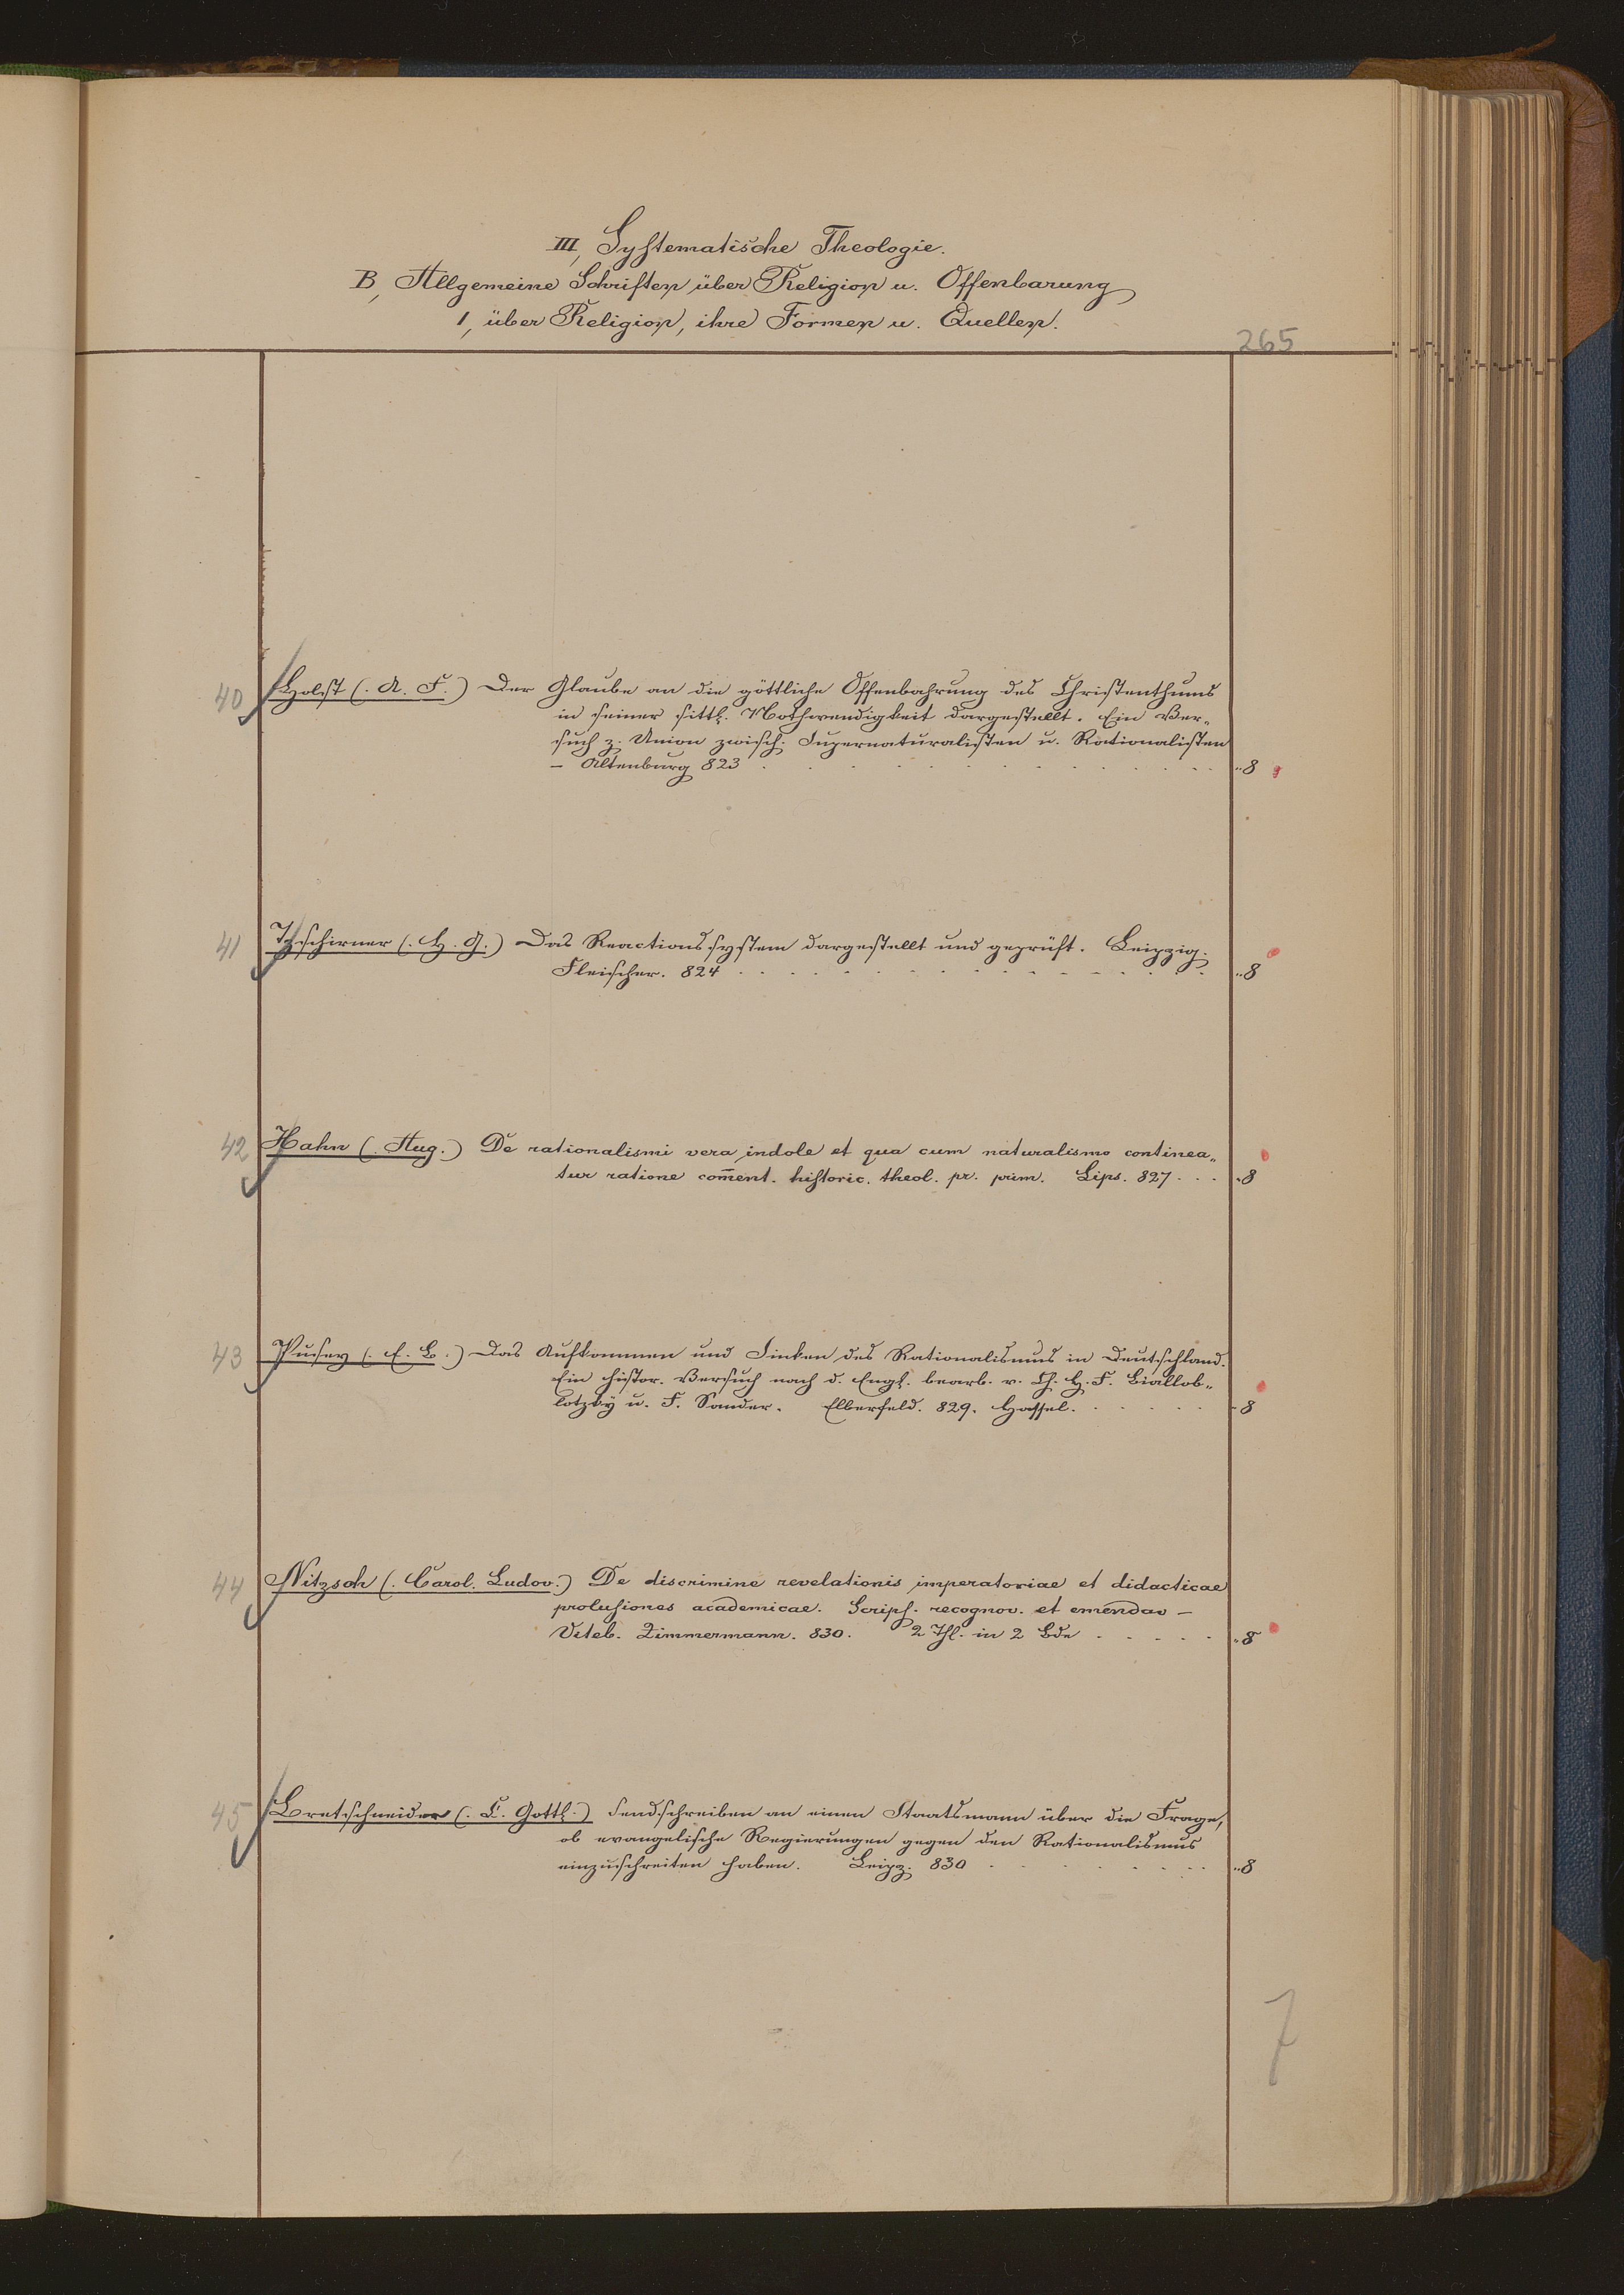 III, Systematische Theologie.
B, Allgemeine Schriften über Religion u. Offenbarung
1, über Religion, ihre Formen u. Quellen.
265
40 Holst (. A. F.) Der Glaube an die göttliche Offenbahrung des Christenthums
in seiner sittl. Nothwendigkeit dargestellt. Ein Ver-
such z. Union zwisch. Supernaturalisten u. Rationalisten
– Altenburg 823 . . . . . . . . . . . . „8
41 Tzschirner (. H. G.) Das Reactionssystem dargestellt und geprüft. Leipzig.
Fleischer. 824 . . . . . . . . . . . . „8
42 Hahn (. Aug.) De rationalismi vera indole et qua cum naturalismo continea„
tur ratione com̄ent. historic. theol. pr. prim. Lips. 827 . . . „8
43 Pusey (. E. B.) Das Aufkommen und Sinken des Rationalismus in Deutschland.
Ein histor. Versuch nach d. Engl. bearb. v. Ch. H. F. Biallob„
lotzky u. F. Sander. Elberfeld. 829. Hassel. . . . . . „8
44 Nitzsch (. Carol. Ludov.) De discrimine revelationis imperatoriae et didacticae
prolusiones academicae. Scrips. recognov. et emendav –
Viteb. Zimmermann. 830. 2 Thl. in 2 Bde . . . . . „8
45 Bretschneider (. K. Gottl.) Sendschreiben an einen Staatsmann über die Frage,
ob evangelische Regierungen gegen den Rationalismus
einzuschreiten haben. Leipz. 830 . . . . . . . „8
7